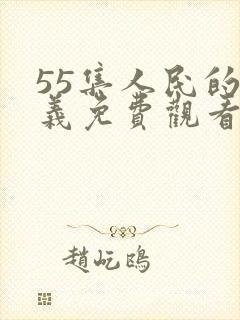 55集人民的
義免費觀看
趙屹鴎